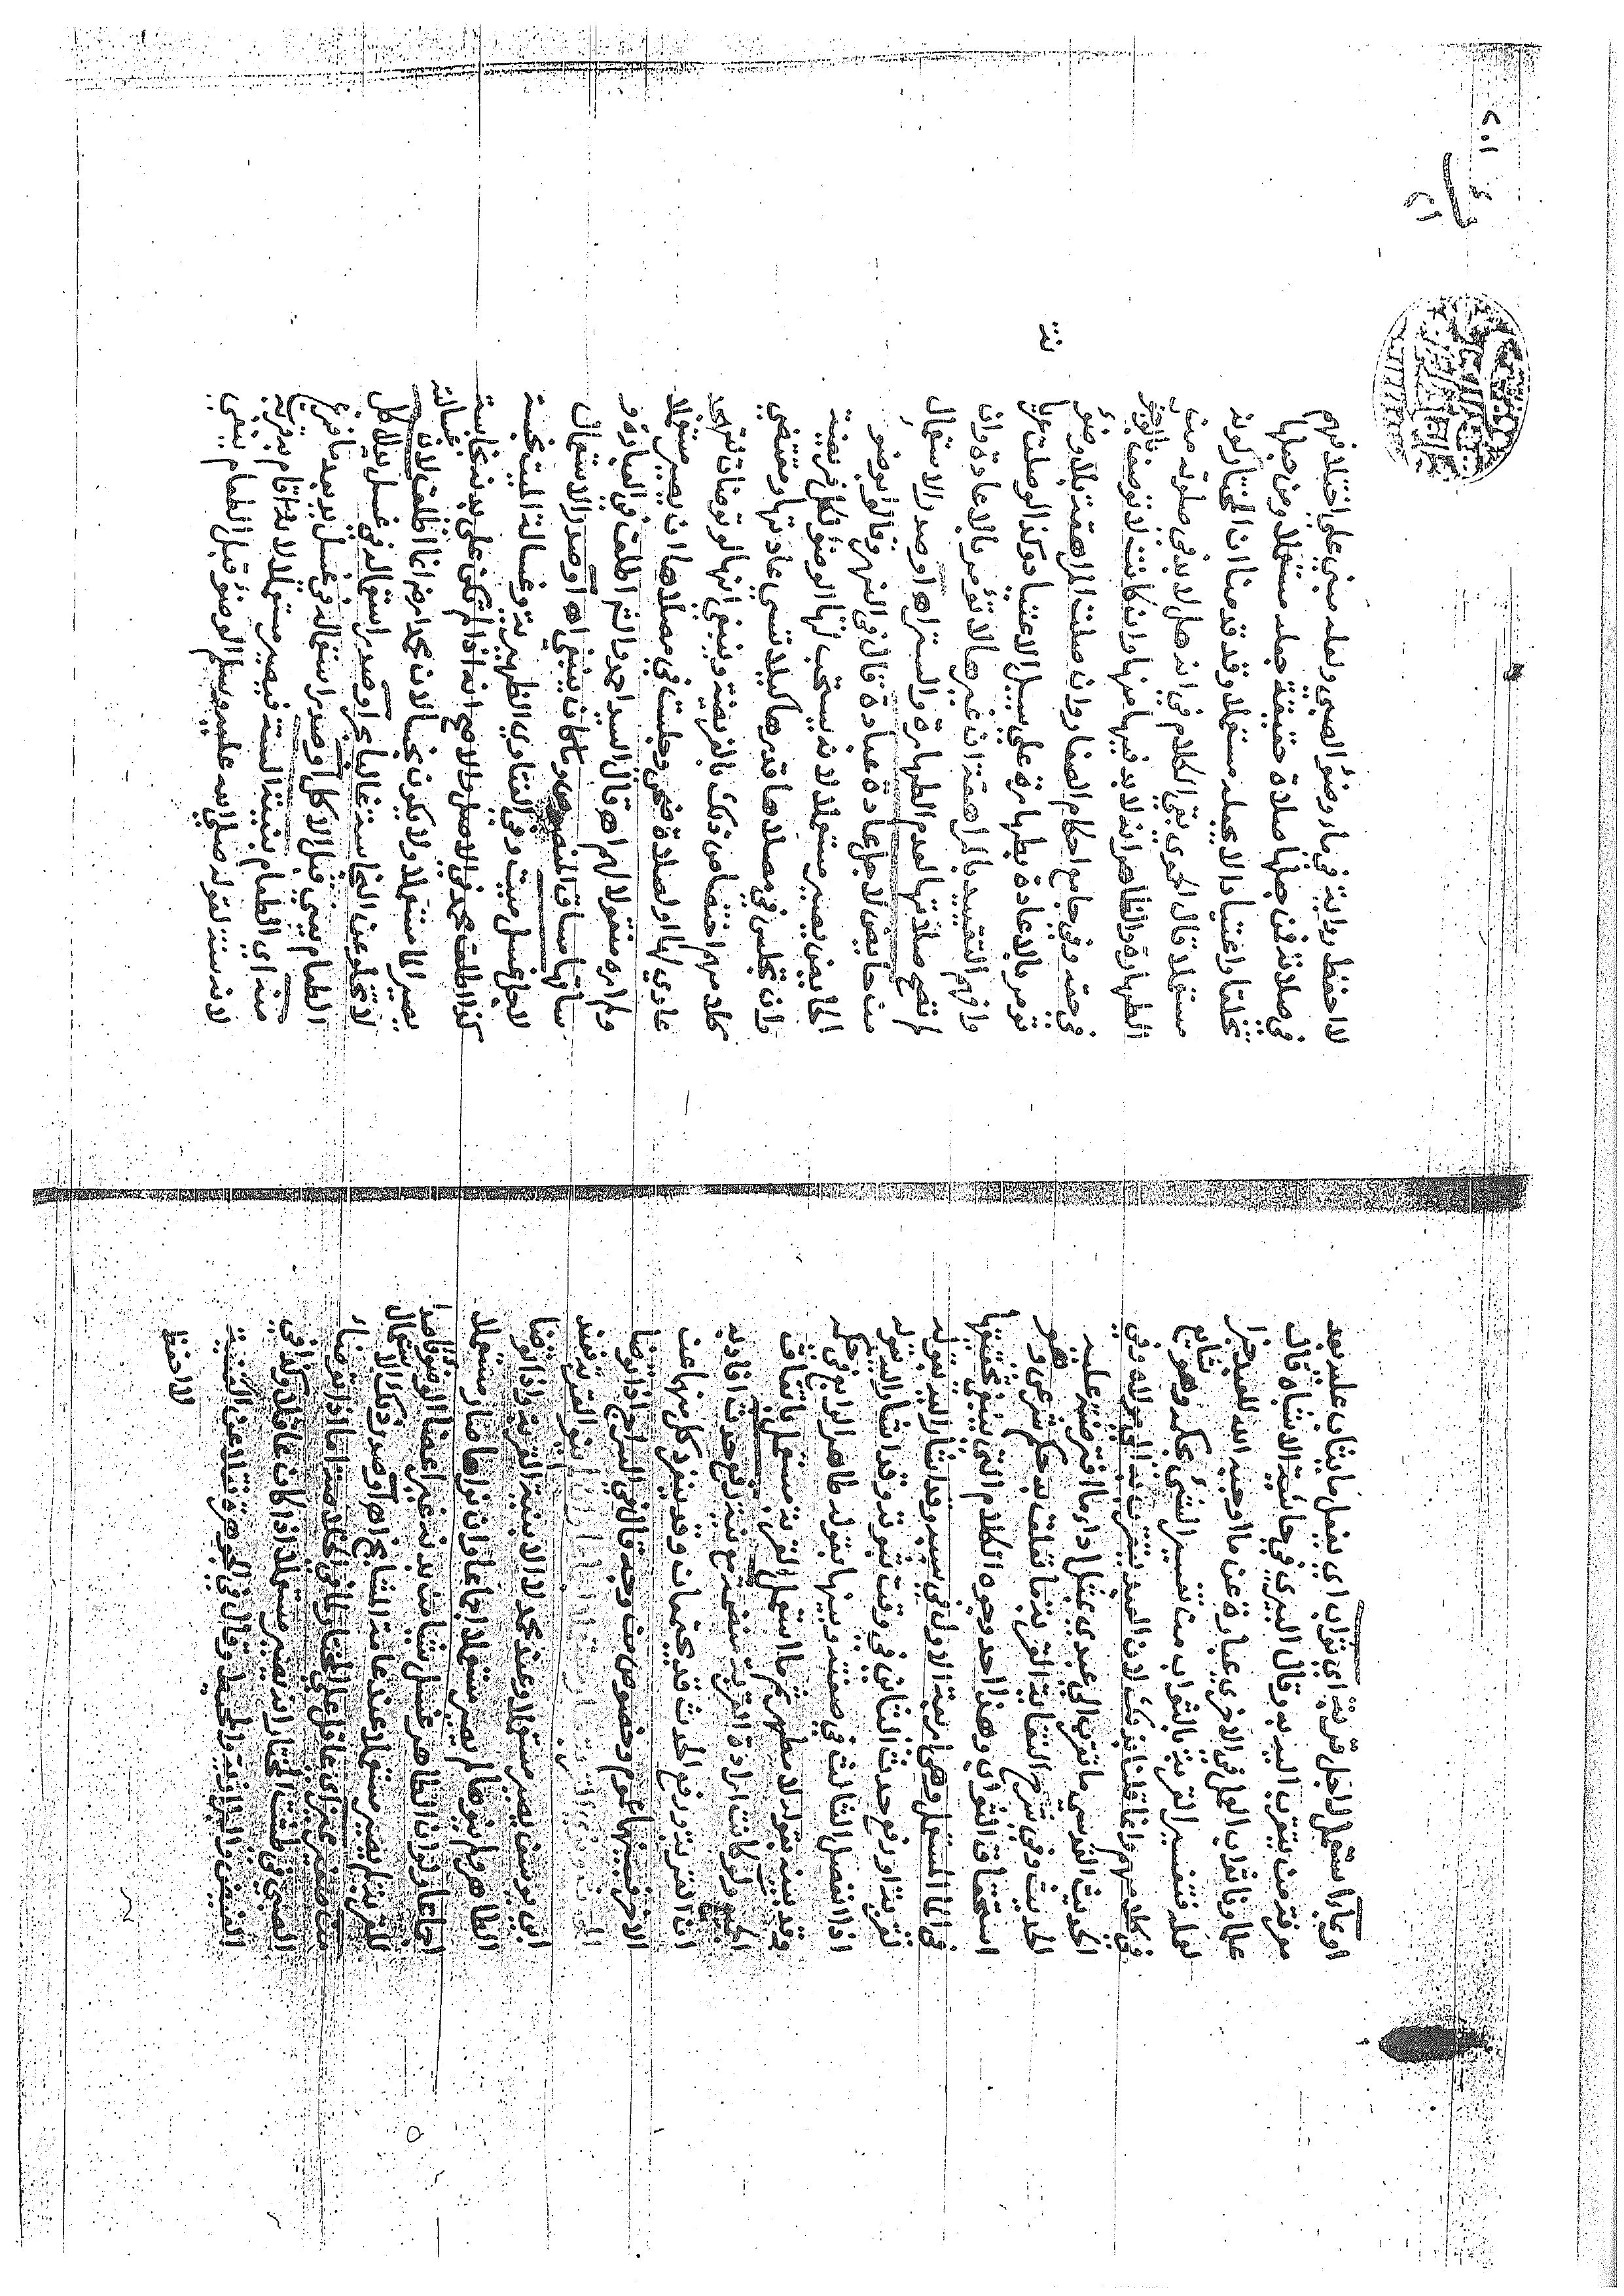 او بما استعمل لاجل قربة اي ثواب اي بفعل ما يثاب عليه بعد
معرفة من يتقرب اليه به وقال البيري في حاشية الاشباه قال
علماؤنا ثواب العمل في الاخرى عبارة عن ما اوجبه الله للعبد جزاء
لعمله فتفسير القربة بالثواب من تفسير الشئ بحكمه وهو شايع
في كلامهم وانما قلنا ذلك لان العبد يتقرب به الى مولاه وفي
الحديث القدسي ما تقرب الى عبدي بمثل اداء ما افترضته عليه
الحديث وفي شرح النقاية القربة ما تعلق به حكم شرعي وهو
استحقاق الثواب وهذا احد وجوه الكلام التي ينبغي تحقيقها
في الماء المستعمل وهي اربعة الاول في سببه وقد اشار اليه بقوله
لقربة او رفع حدث الثاني في وقت ثبوته وقد اشار اليه بقوله
اذا انفصل الثالث في صفته وبينها بقوله طاهر الرابع في حكمه
وقد بينه بقوله لا مطهر ثم ما استعمل لقربة مستعمل باتفاق
ولو كانت ارادة القربة مع نية رفع حدث افاد به
ان القربة ورفع الحدث قد يجتمعان وقد ينفرد كل منهما عن
الاخر فبينهما عموم وخصوص من وجه قال في السراج اذا توضا
القربة فعند
ابي يوسف يصير مستعملا وعند محمد لا الا بنية القربة واذا توضا
الطاهر ولم ينوها لم يصير مستعملا اجماعا وان نواها صار مستعملا
اجماعا ولو ان الطاهر غسل شيئا من بدنه غير اعضاء الوضوء قاصدا
للقربة لم يصير مستعملا عند عامة المشايخ اه وصدر ذلك الاستعمال
من صغير مميز اي عاقل على المختار قال في الخلاصة اما اذا توضاء
الصبي في طشت المختار انه يصير مستعملا اذا كان عاقلا وكذا في
الفيض والخانية والمحيط وقال في الجوهرة نقلا عن القنية
لا حفظ
لا حفظ رواية في ماء وضوء الصبي ولعله مبني على اختلافهم
في صلاته فمن جعلها صلاة حقيقة جعله مستعملا ومن جعلها
تخلقا واعتيادا لا يجعله مستعملا وقد قدمنا ان المختار كونه
مستعملا قال الحموي بقي الكلام في انه هل لا بد في صلوته من
الطهارة والظاهر انه لا بد فيها منها وان كانت لا توصف بالفرض
في حقه وفي جامع احكام الصغار وان صلت المراهقة بلا وضوء
تومر بالاعادة بطهارة على سبيل الاعتياد وكذا لو صلت عريانة
وافهم التقييد بالمراهقة ان غيرها لا تؤمر بالاعادة وان
لم تصح صلاتها لعدم الطهارة والستر اه او صدر الاستعمال
من حايض لاجل عادة عبادة قال في النهر وقالوا بوضوء
الحايض يصير مستعملا لانه يستحب لها الوضوء لكل فريضة
وان تجلس في مصلاها قدرها كيلا تنسى عادتها ومقتضى
كلامهم اختصاص ذلك بالفريضة وينبغي انها لو توضات لتهجد
عادي لها او لصلاة ضحى وجلست في مصلاها ان يصير مستعملا
ولم اره منقولا لهم اه قال السيد احمد وانت اطلقت في العبارة و
سياقها ينبغي اه او صدر الاستعمال
لاجل غسل ميت وفي الفتاوى الظهيرية وغسالة الميت نجسة
كذا اطلقه محمد في الاصل والاصح انه اذا لم تكن على بدنه نجاسة
يصير الماء مستعملا ولا يكون نجسا الا ان محمدا رحمه انما اطلقه لان غسالته
لا تخلو عن النجاسة غالبا بحر او صدر استعماله في غسل يد لاكل
الطعام يعني قبل الاكل او صدر استعماله في غسل يد بعد ما فرغ
منه اي الطعام بنية السنة فيصير مستعملا لانه اقام به قربة
لانه سنة لقوله صلى الله عليه وسلم الوضوء قبل الطعام ينفي